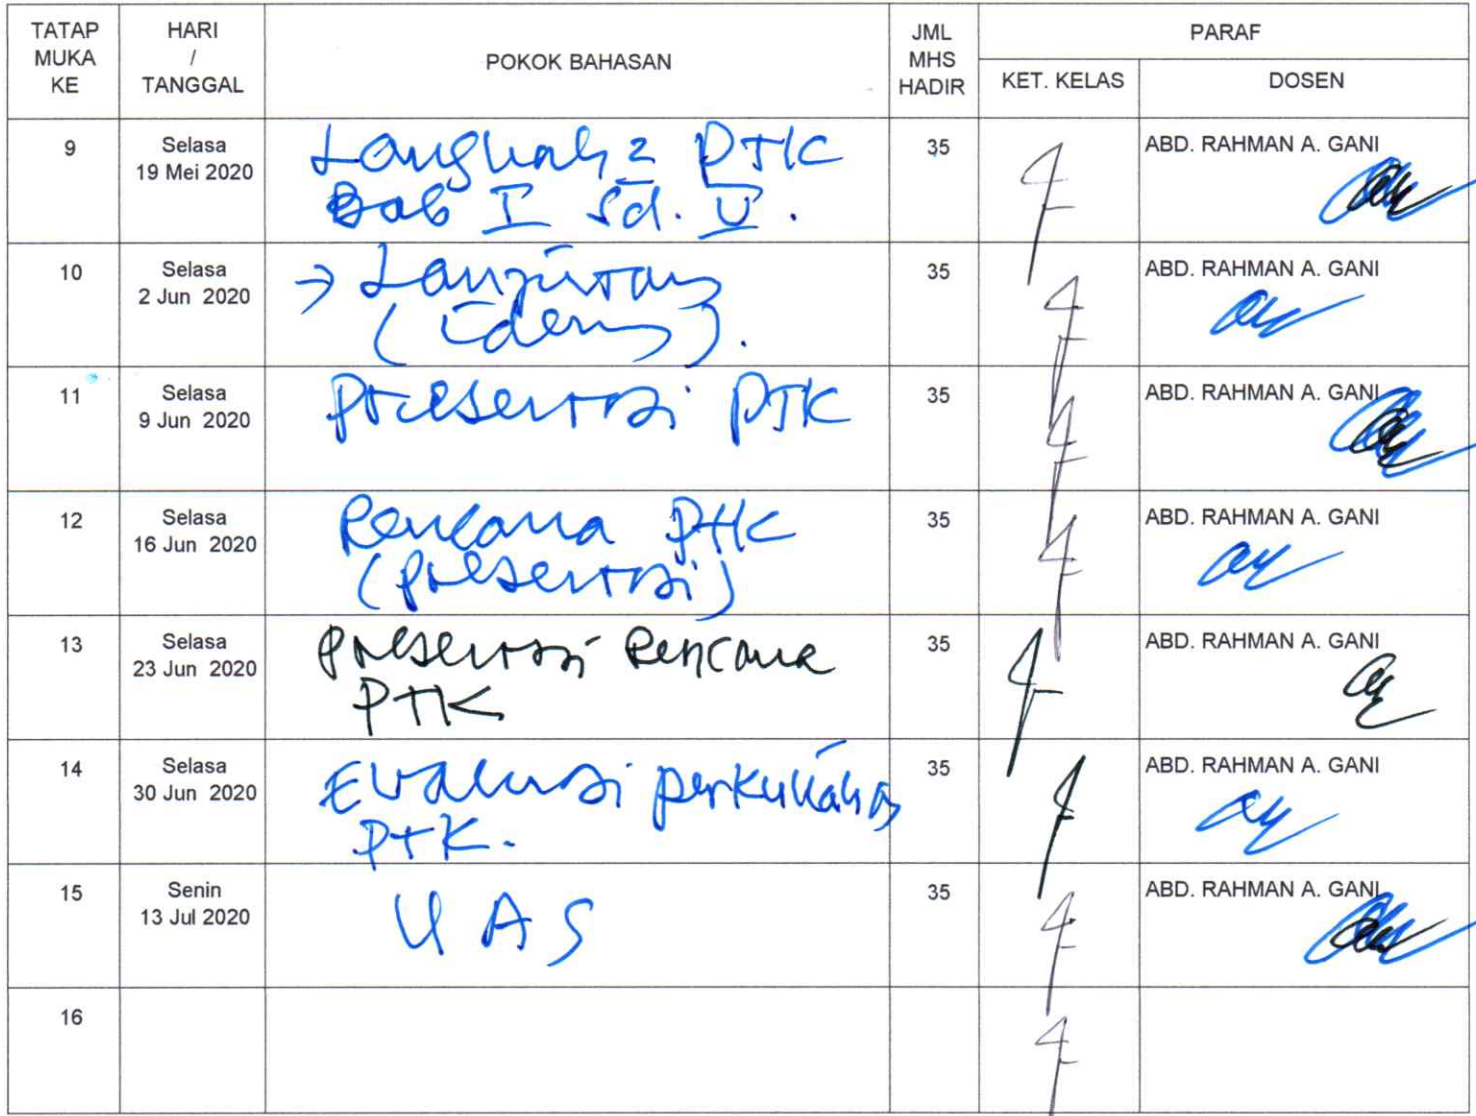 TATAP MUKA KE
HARI / TANGGAL
POKOK BAHASAN
JML MHS HADIR
PARAF
KET. KELAS
DOSEN
9
Selasa
19 Mei 2020
Langkah2 PTK
Bab I sd. V.
35
ABD. RAHMAN A. GANI
10
Selasa
2 Jun 2020
→ Lanjutan
(idem).
35
ABD. RAHMAN A. GANI
11
Selasa
9 Jun 2020
Presentasi PTK
35
ABD. RAHMAN A. GANI
12
Selasa
16 Jun 2020
Rencana PTK
(presentasi)
35
ABD. RAHMAN A. GANI
13
Selasa
23 Jun 2020
Presentasi Rencana
PTK
35
ABD. RAHMAN A. GANI
14
Selasa
30 Jun 2020
Evaluasi perkuliahan
PTK.
35
ABD. RAHMAN A. GANI
15
Senin
13 Jul 2020
UAS
35
ABD. RAHMAN A. GANI
16